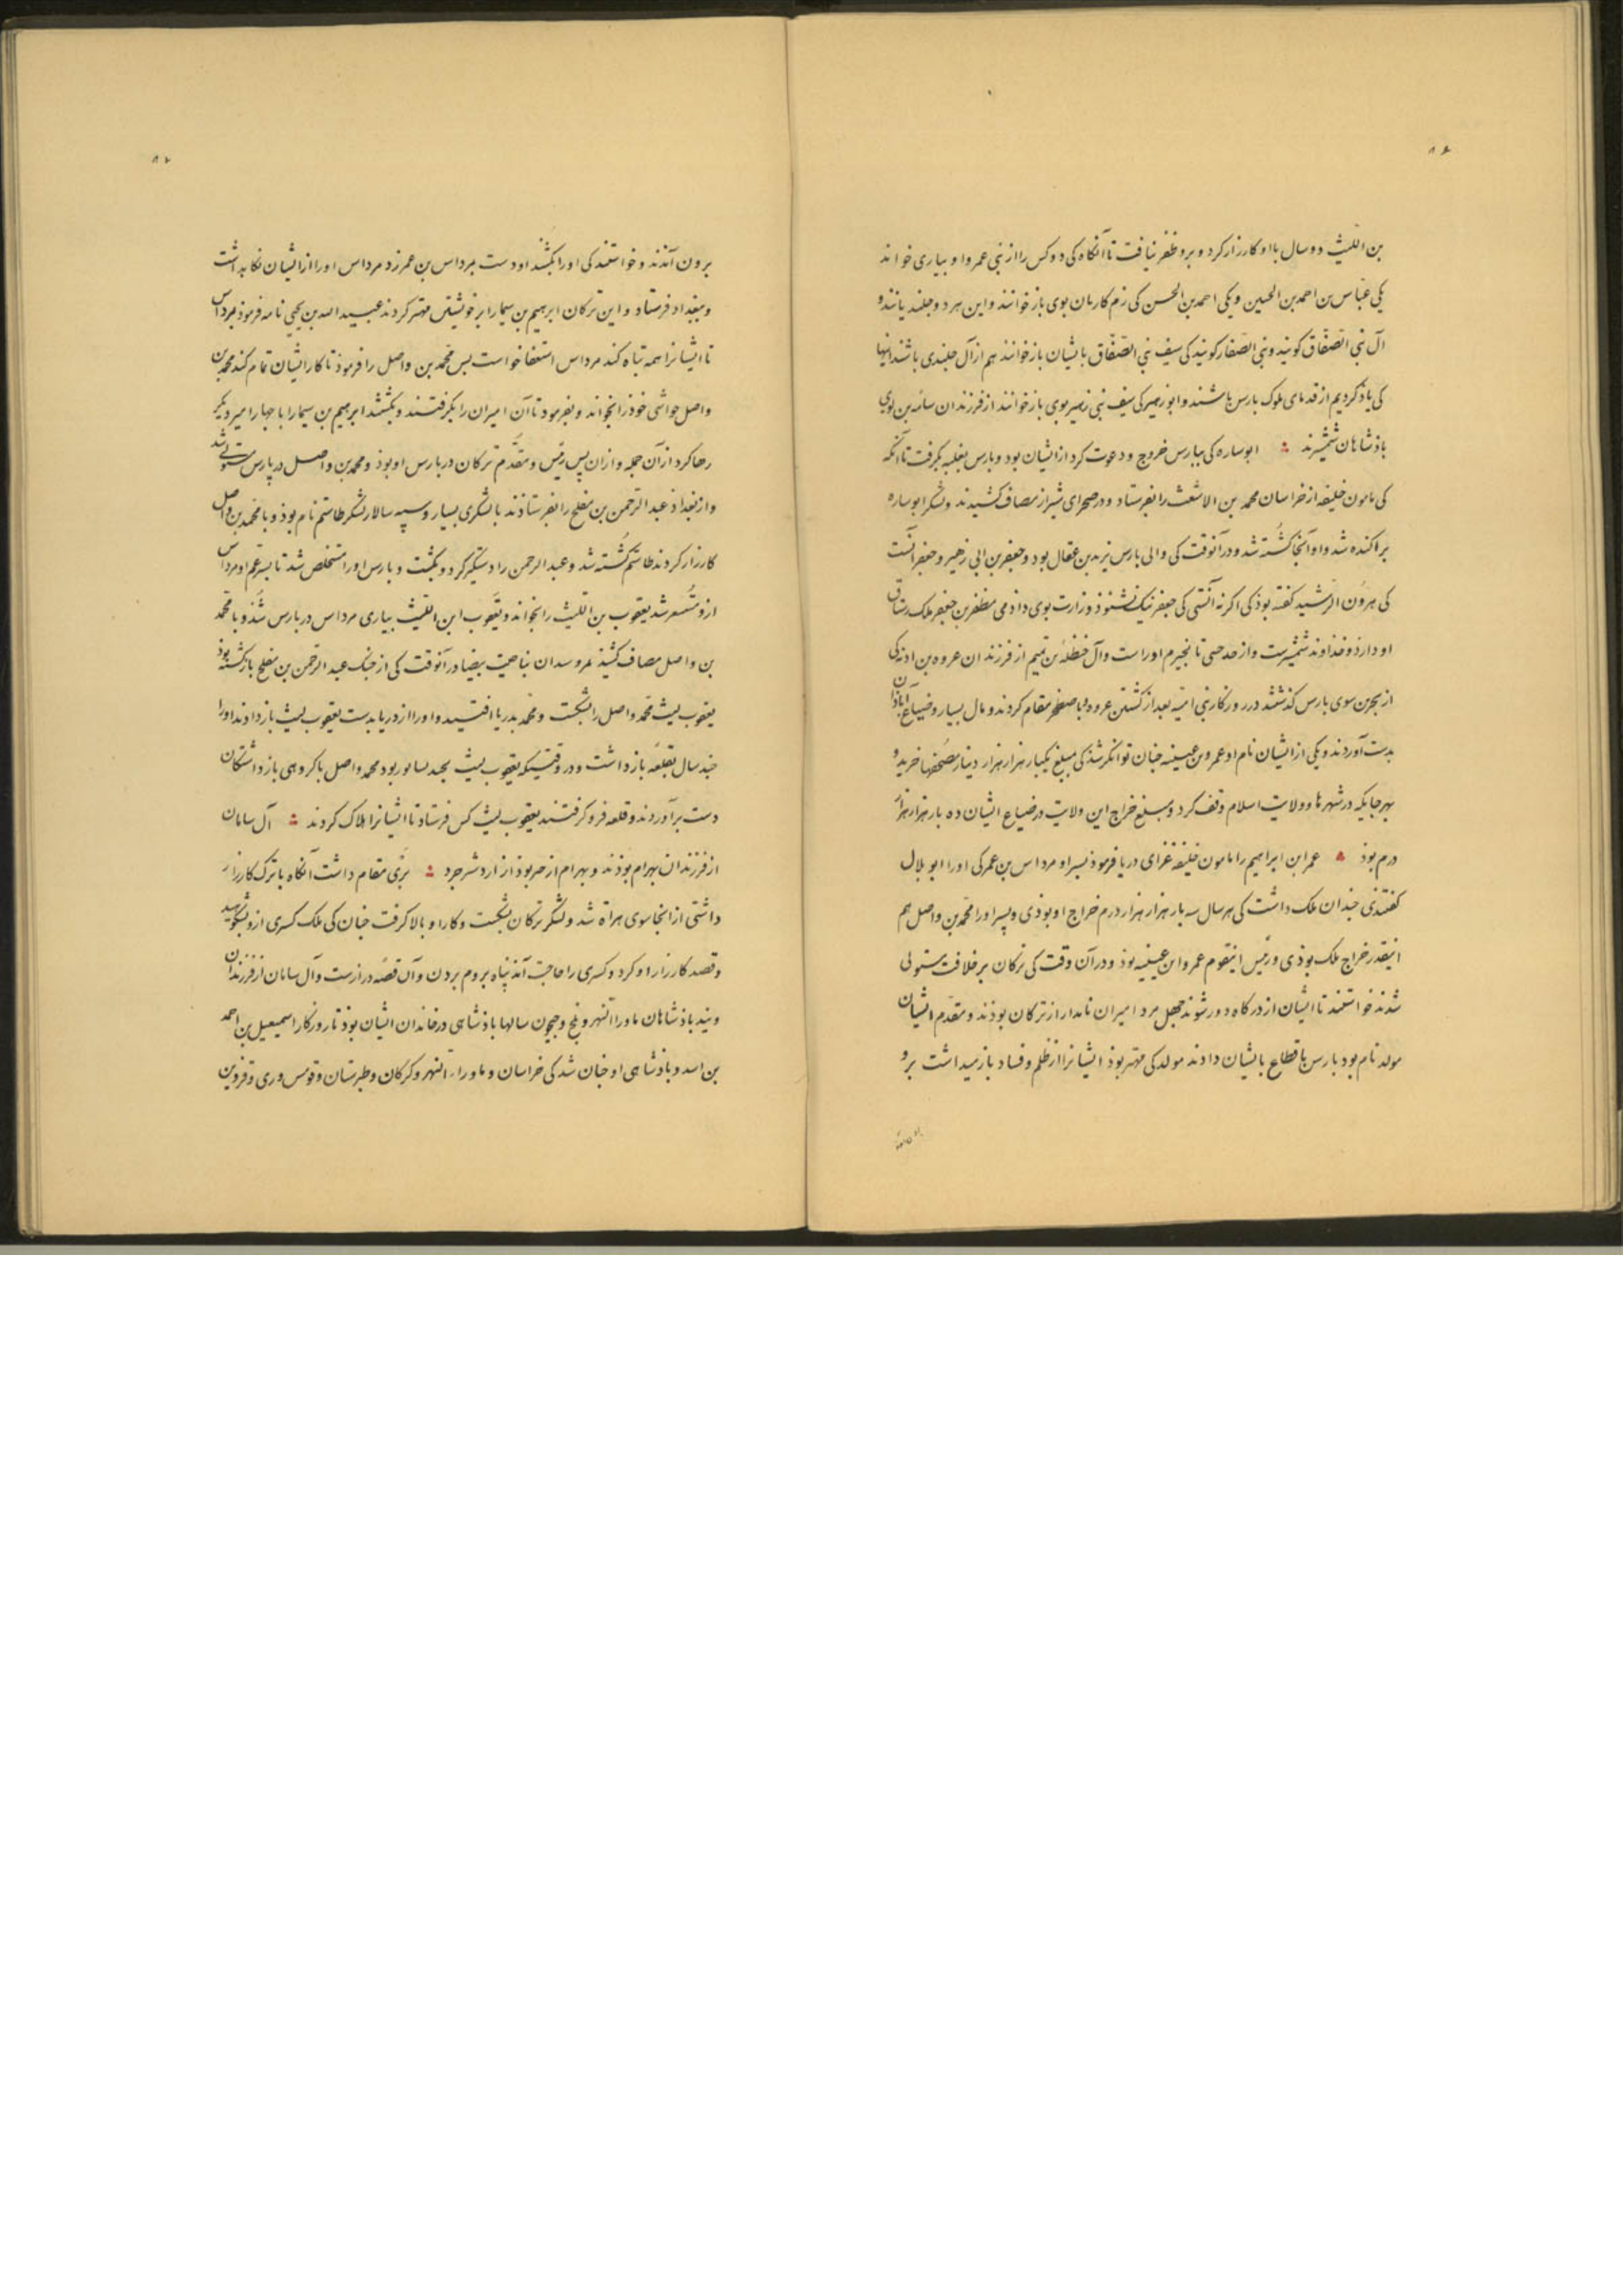 ۸۶
بن اللیث دو سال با او کارزار کرد و برو ظفر نیافت تا آنگاه کی دو کس را از بنی عمر وا و بیاری خواند
یکی عباس بن احمد بن الحسین و یکی احمد بن الحسن کی رم کاریان بوی باز خوانند و این هر دو جلندیانند و
آل بنی الصفاق کویند و بنی الصفار کویند کی سیف بنی الصفاق بایشان باز خوانند هم از آل جلندی باشند اینها
کی یاذ کردیم از قدمای ملوک بارس باشند و ابو زهیر کی سیف بنی زهیر بوی باز خوانند از فرزندان سامه بن لوی
باذشاهان شمشیرند ابوساره کی ببارس خروج و دعوت کرد از ایشان بود و بارس بغلبه بکرفت تا آنگه
کی مامون خلیفه از خراسان محمد بن الاشعث را بفرستاد و در صحرای شیراز مصاف کشیدند و لشکر ابوساره
براکنده شد و او آنجا کشته شد و در آنوقت کی والی بارس یزید بن عقال بود و جعفر بن ابی زهیر و جعفر آنست
کی هرون الرشید کفته بوذ کی اکر نه آنستی کی جعفر نیک نشنوذ وزارت بوی داذمی مظفر بن جعفر ملک رستاق
او دارذ و خذاوند شمشیرست و از حد جی تا نجیرم اوراست و آل حنظله بن تمیم از فرزندان عروه بن ادنه کی
از بحرین سوی بارس کذشتند در روزکار بنی امیه بعد از کشتن عروه و باصطخر مقام کردند و مال بسیار و ضیاع آباذان
بدست آوردند و یکی از ایشان نام او عمرو بن عیینه جنان توانکر شذ کی مبلغ یکبار هزار هزار دینار مصحفها خرید و
بهر جایکه در شهرها و ولایت اسلام وقف کرد و مبلغ خراج این ولایت و ضیاع ایشان ده بار هزار هزار
درم بوذ عمر ابن ابراهیم را مامون خلیفه غزای دریا فرموذ بسر او مرداس بن عمر کی او را ابو بلال
کفتندی جندان ملک داشت کی هر سال سه بار هزار هزار درم خراج او بوذی و پسر او را محمد بن واصل هم
اینقدر خراج ملک بوذی و رئیس اینقوم عمرو ابن عیینه بوذ و در آن وقت کی ترکان بر خلافت مستولی
شدند خواستند تا ایشان از درکاه دور شوند جهل مرد امیران نامدار از ترکان بوذند و مقدم ایشان
مولد نام بود بارس باقطاع بایشان دادند مولد کی مهتر بوذ ایشانرا از ظلم و فساد باز میداشت برو
برون آمذند و خواستند کی او را بکشند او دست بمرداس بن عمر زد مرداس او را از ایشان نکاه بداشت
و ببغداد فرستاد و این ترکان ابرهیم بن سیما را بر خویشتن مهتر کردند عبید الله بن یحیی نامه فرموذ بمرداس
تا ایشانرا همه تباه کند مرداس استعفا خواست بس محمد بن واصل را فرموذ تا کار ایشان تمام کند محمد بن
واصل حواشی خوذ را بخواند و بفرمود تا آن امیران را بکرفتند و بکشتند ابرهیم بن سیما را با جهار امیر دیکر
رها کرد از آن جمله و ازان پس رئیس و مقدم ترکان در بارس او بوذ و محمد بن واصل در پارس مستولی شد
و از بغداد عبد الرحمن بن مفلح را بفرستاذند با لشکری بسیار و سپه سالار لشکر طاشتم نام بوذ و با محمد بن واصل
کارزار کردند طاشتم کشته شد و عبد الرحمن را دستگیر کرد و بکشت و بارس او را مستخلص شد تا بسر عم او مرداس
ازو مستشعر شد یعقوب بن اللیث را بخواند و یعقوب ابن اللیث بیاری مرداس در بارس شذ و با محمد
بن واصل مصاف کشیذ بناحیت بیضا در آنوقت کی از جنک عبد الرحمن بن مفلح بازکشته بوذ
یعقوب لیث محمد واصل را بشکست و محمد بدریا افتید و او را از دریا بدست یعقوب لیث باز دادند او را
جند سال بقلعه باز داشت و در وقتیکه یعقوب لیث بجندیسابور بود محمد واصل با کروهی بازداشتکان
دست برآوردند و قلعه فرو کرفتند یعقوب لیث کس فرستاد تا ایشانرا هلاک کردند آل سامان
از فرزندان بهرام بوذند و بهرام از خر بوذ از اردشیر جرد بری مقام داشت آنکاه با ترک کارزار
داشتی از آنجا سوی هراة شد و لشکر ترکان بشکست و کار او بالا کرفت جنان کی ملک کسری ازو بشکوهید
و قصد کارزار او کرد و کسری را حاجت آمذ پناه بروم بردن و آن قصه درازست و آل سامان از فرزندان
ویند باذشاهان ماورا النهر و بلخ و جیحون سالها باذشاهی در خاندان ایشان بوذ تا روزکار اسمعیل بن احمد
بن اسد و باذشاهی او جنان شد کی خراسان و ماوراء النهر و کرکان و طبرستان و قومس و ری و قزوین